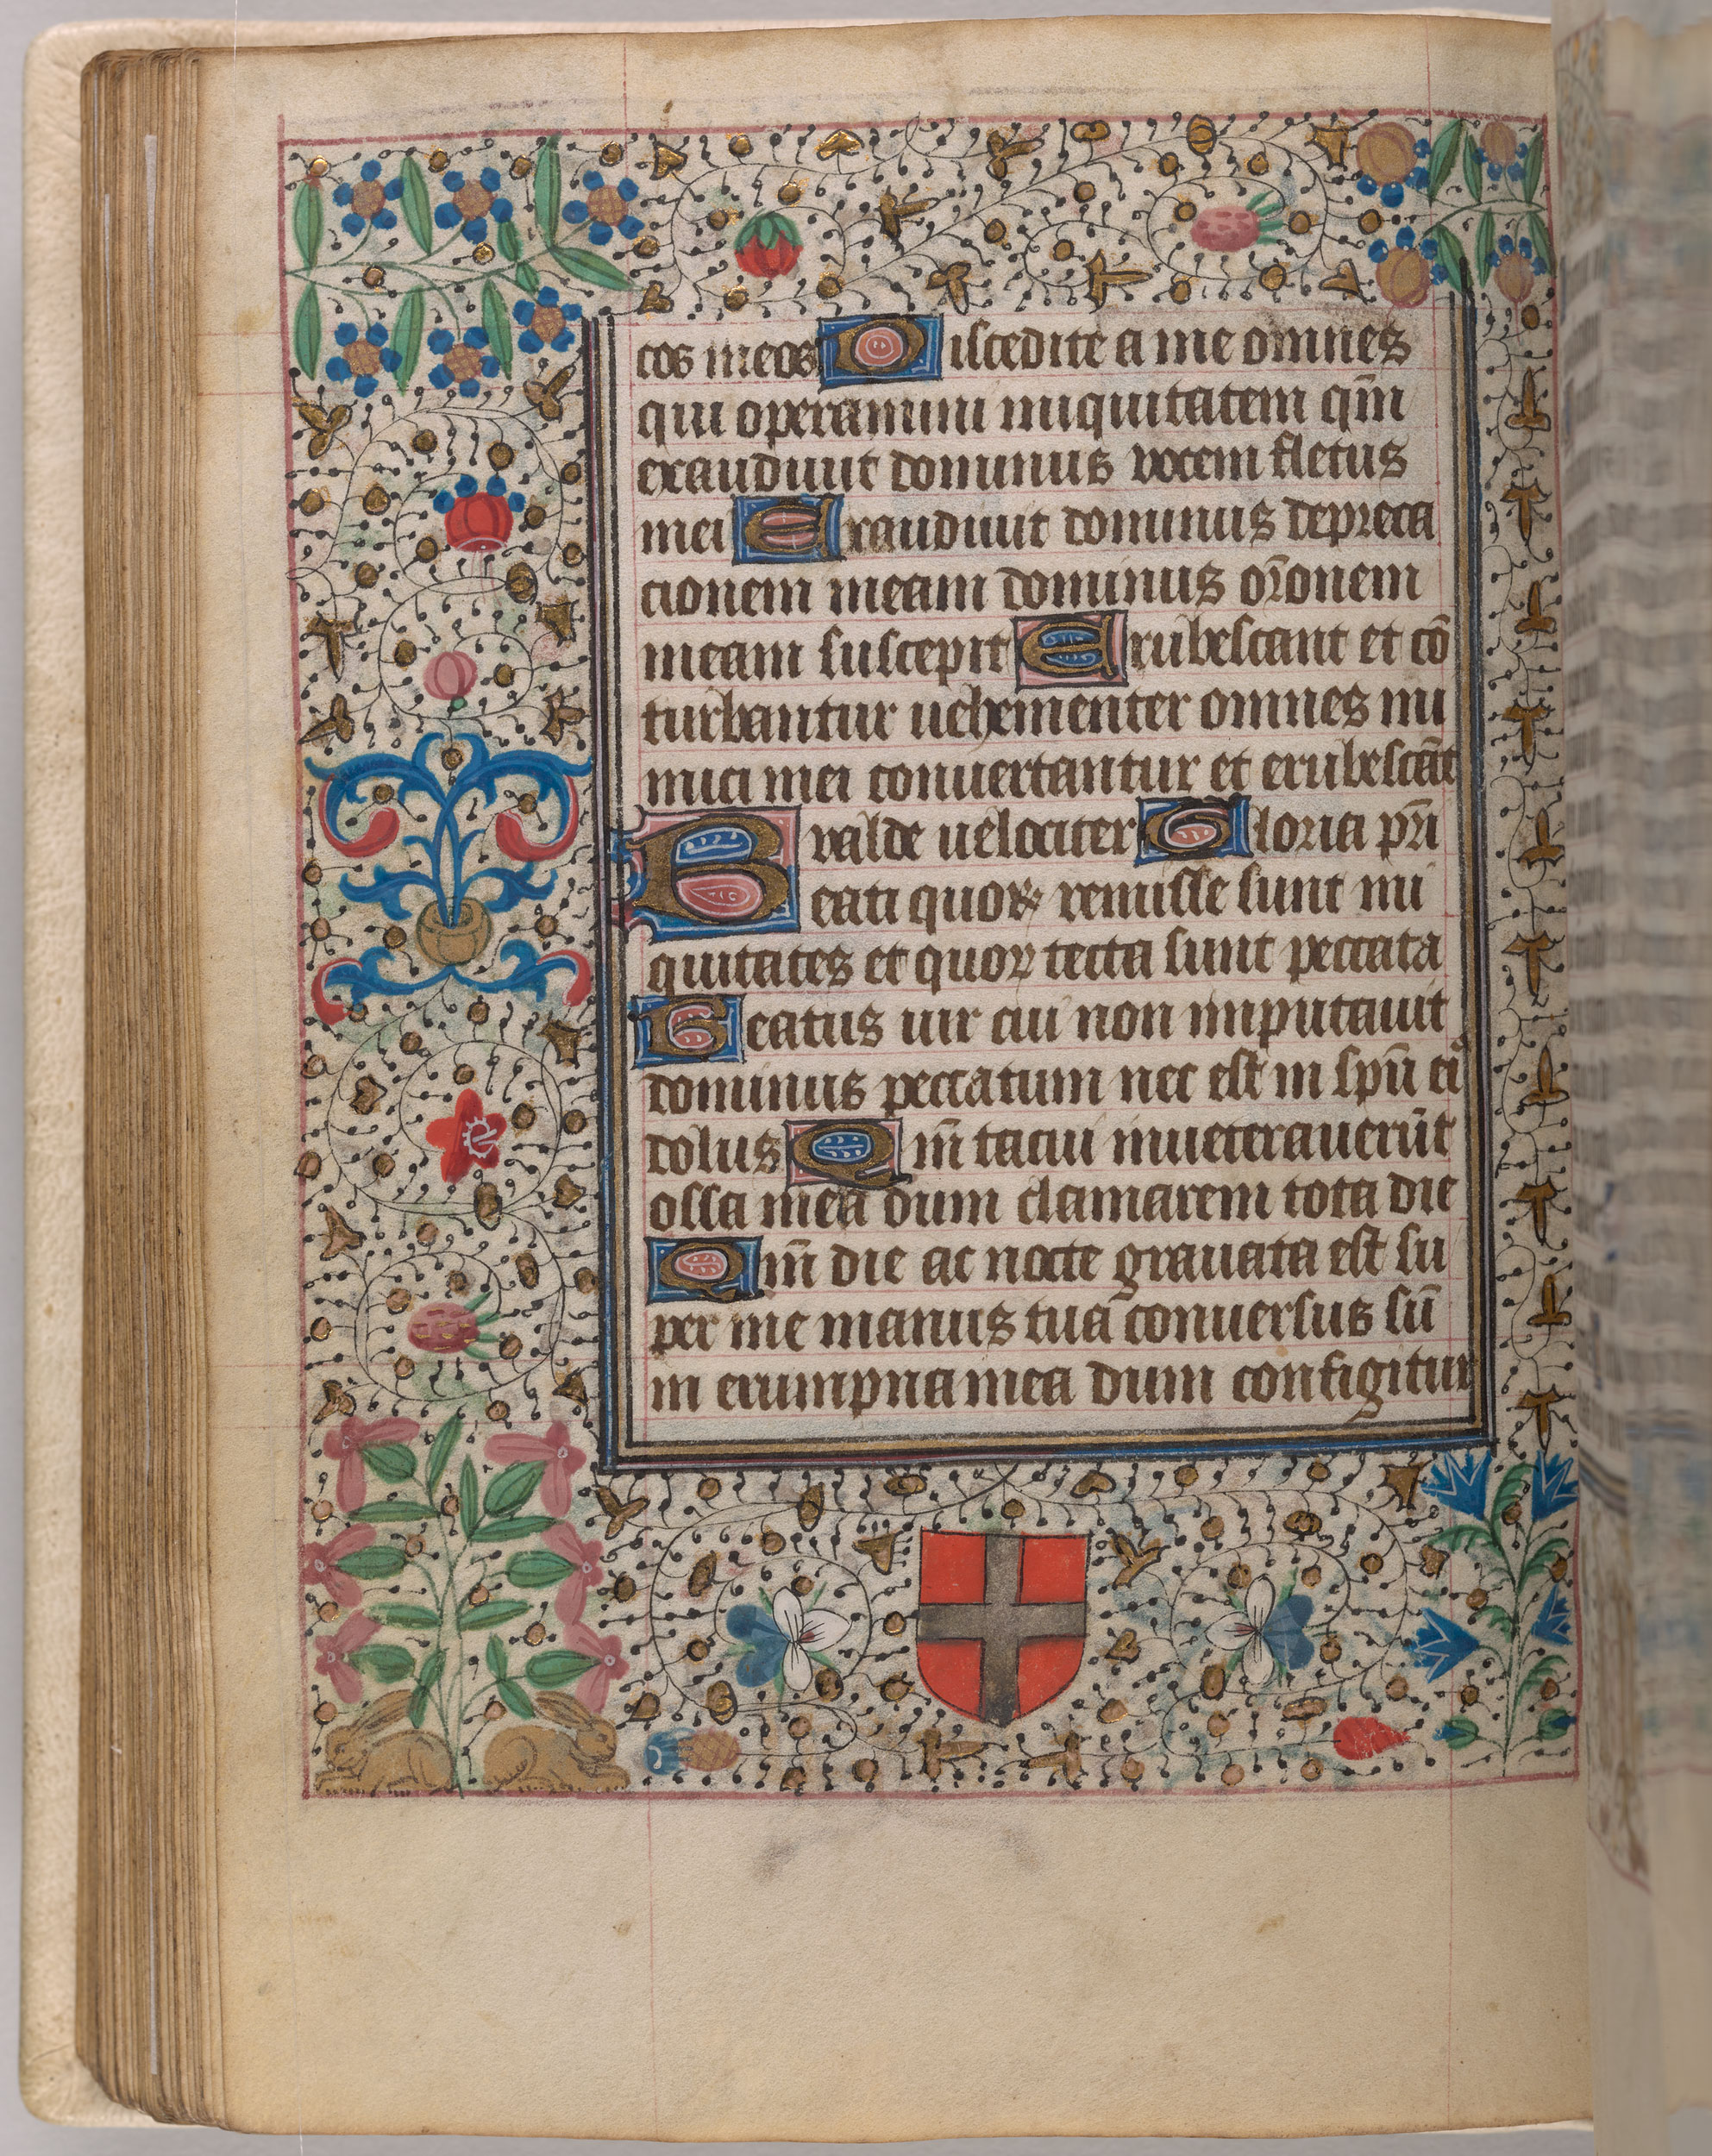 cos meos Discedite a me omnes
qui operamini iniquitatem qm̄
exaudiuit dominus vocem fletus
mei Exaudiuit dominus depreca
cionem meam dominus or̄onem
meam suscepit Erubescant et cō
turbantur uehementer omnes ini
mici mei conuertantur et erubescāt
valde uelociter Gloria pr̄i
Beati quoꝝ remisse sunt ini
quitates et quoꝝ tecta sunt peccata
Beatus uir cui non imputauit
dominus peccatum nec est in spū eiꝰ
dolus Qm̄ tacui inueterauerūt
ossa mea dum clamarem tota die
Qm̄ die ac nocte grauata est su
per me manus tua conuersus sū
in erumpna mea dum configitur